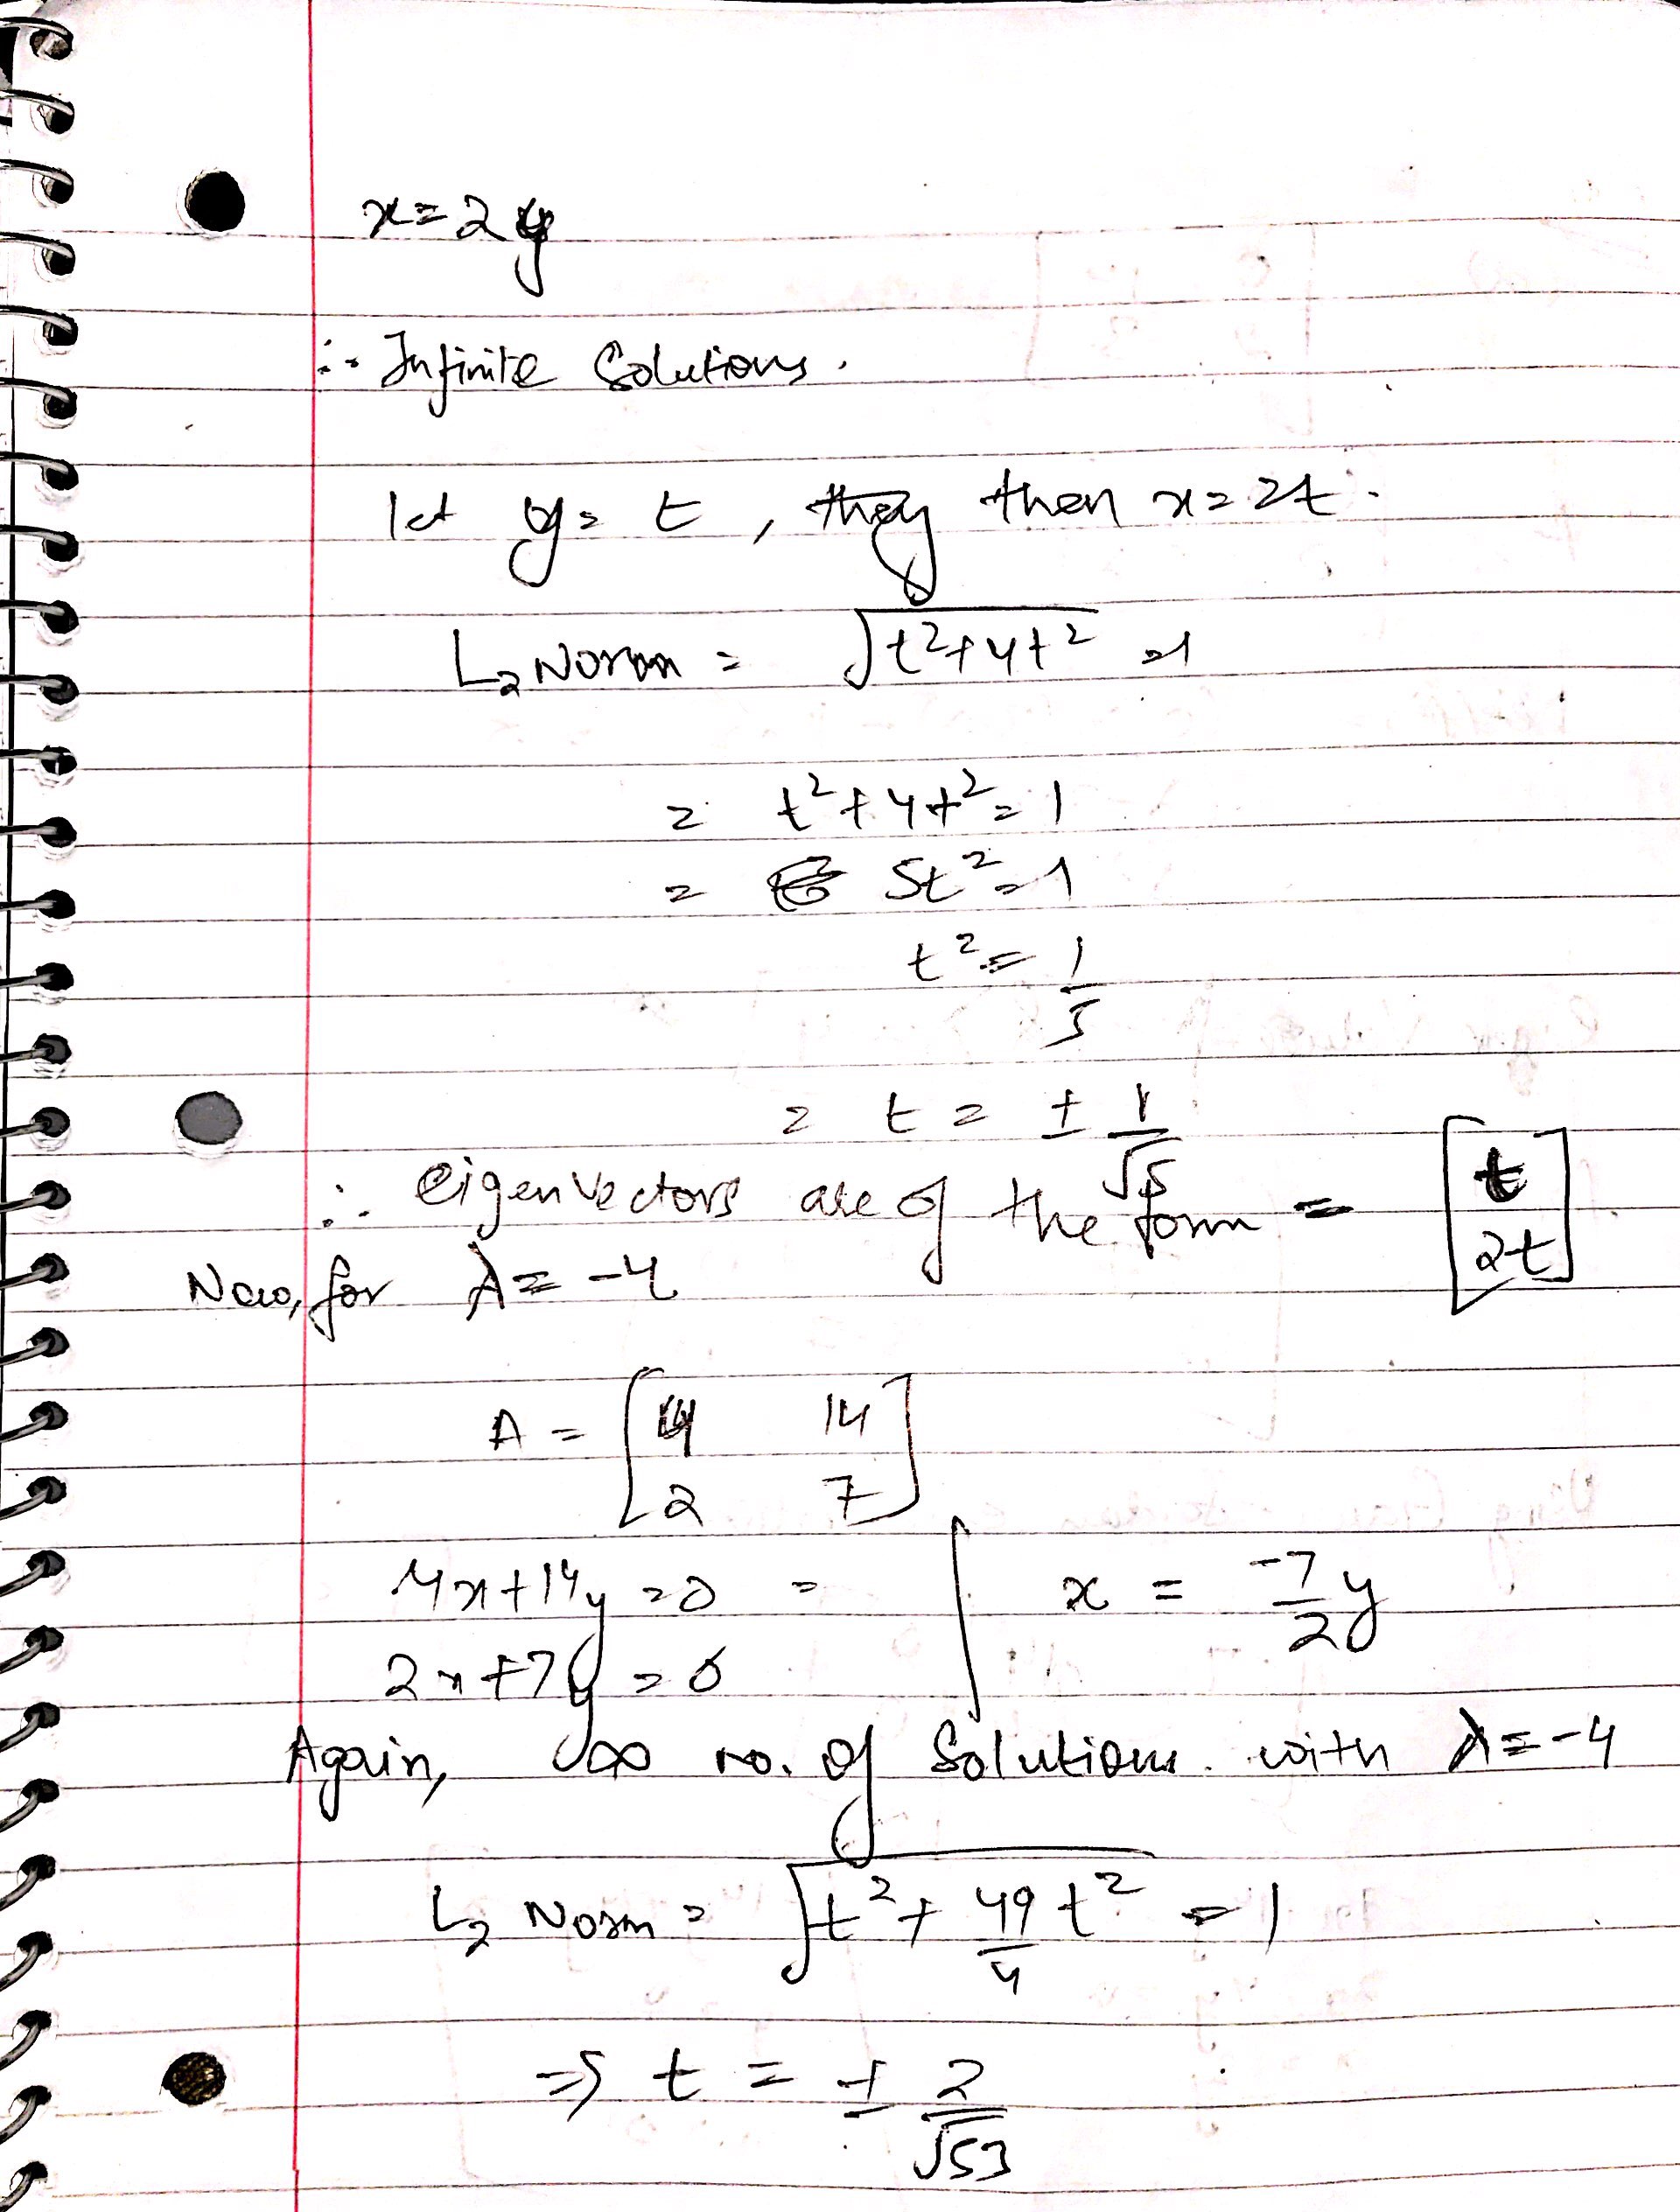 x = 2y
∴ Infinite Solutions.
let y = t, they then x = 2t.
L₂ Norm = √(t² + 4t²) = 1
= t² + 4t² = 1
= 5t² = 1
t² = 1/5
= t = ± 1/√5
∴ eigenvectors are of the form = [t 2t]
Now, for λ = -4
A = [4 14
2 7]
4x + 14y = 0 = | x = -7/2 y
2x + 7y = 0
Again, ∞ no. of Solutions. with λ = -4
L₂ Norm = √(t² + 49/4 t²) = 1
⇒ t = ± 2/√53